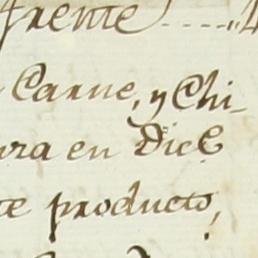 frente ..... 4
Carne, y Chi-
ura en Dic.e
te producto,